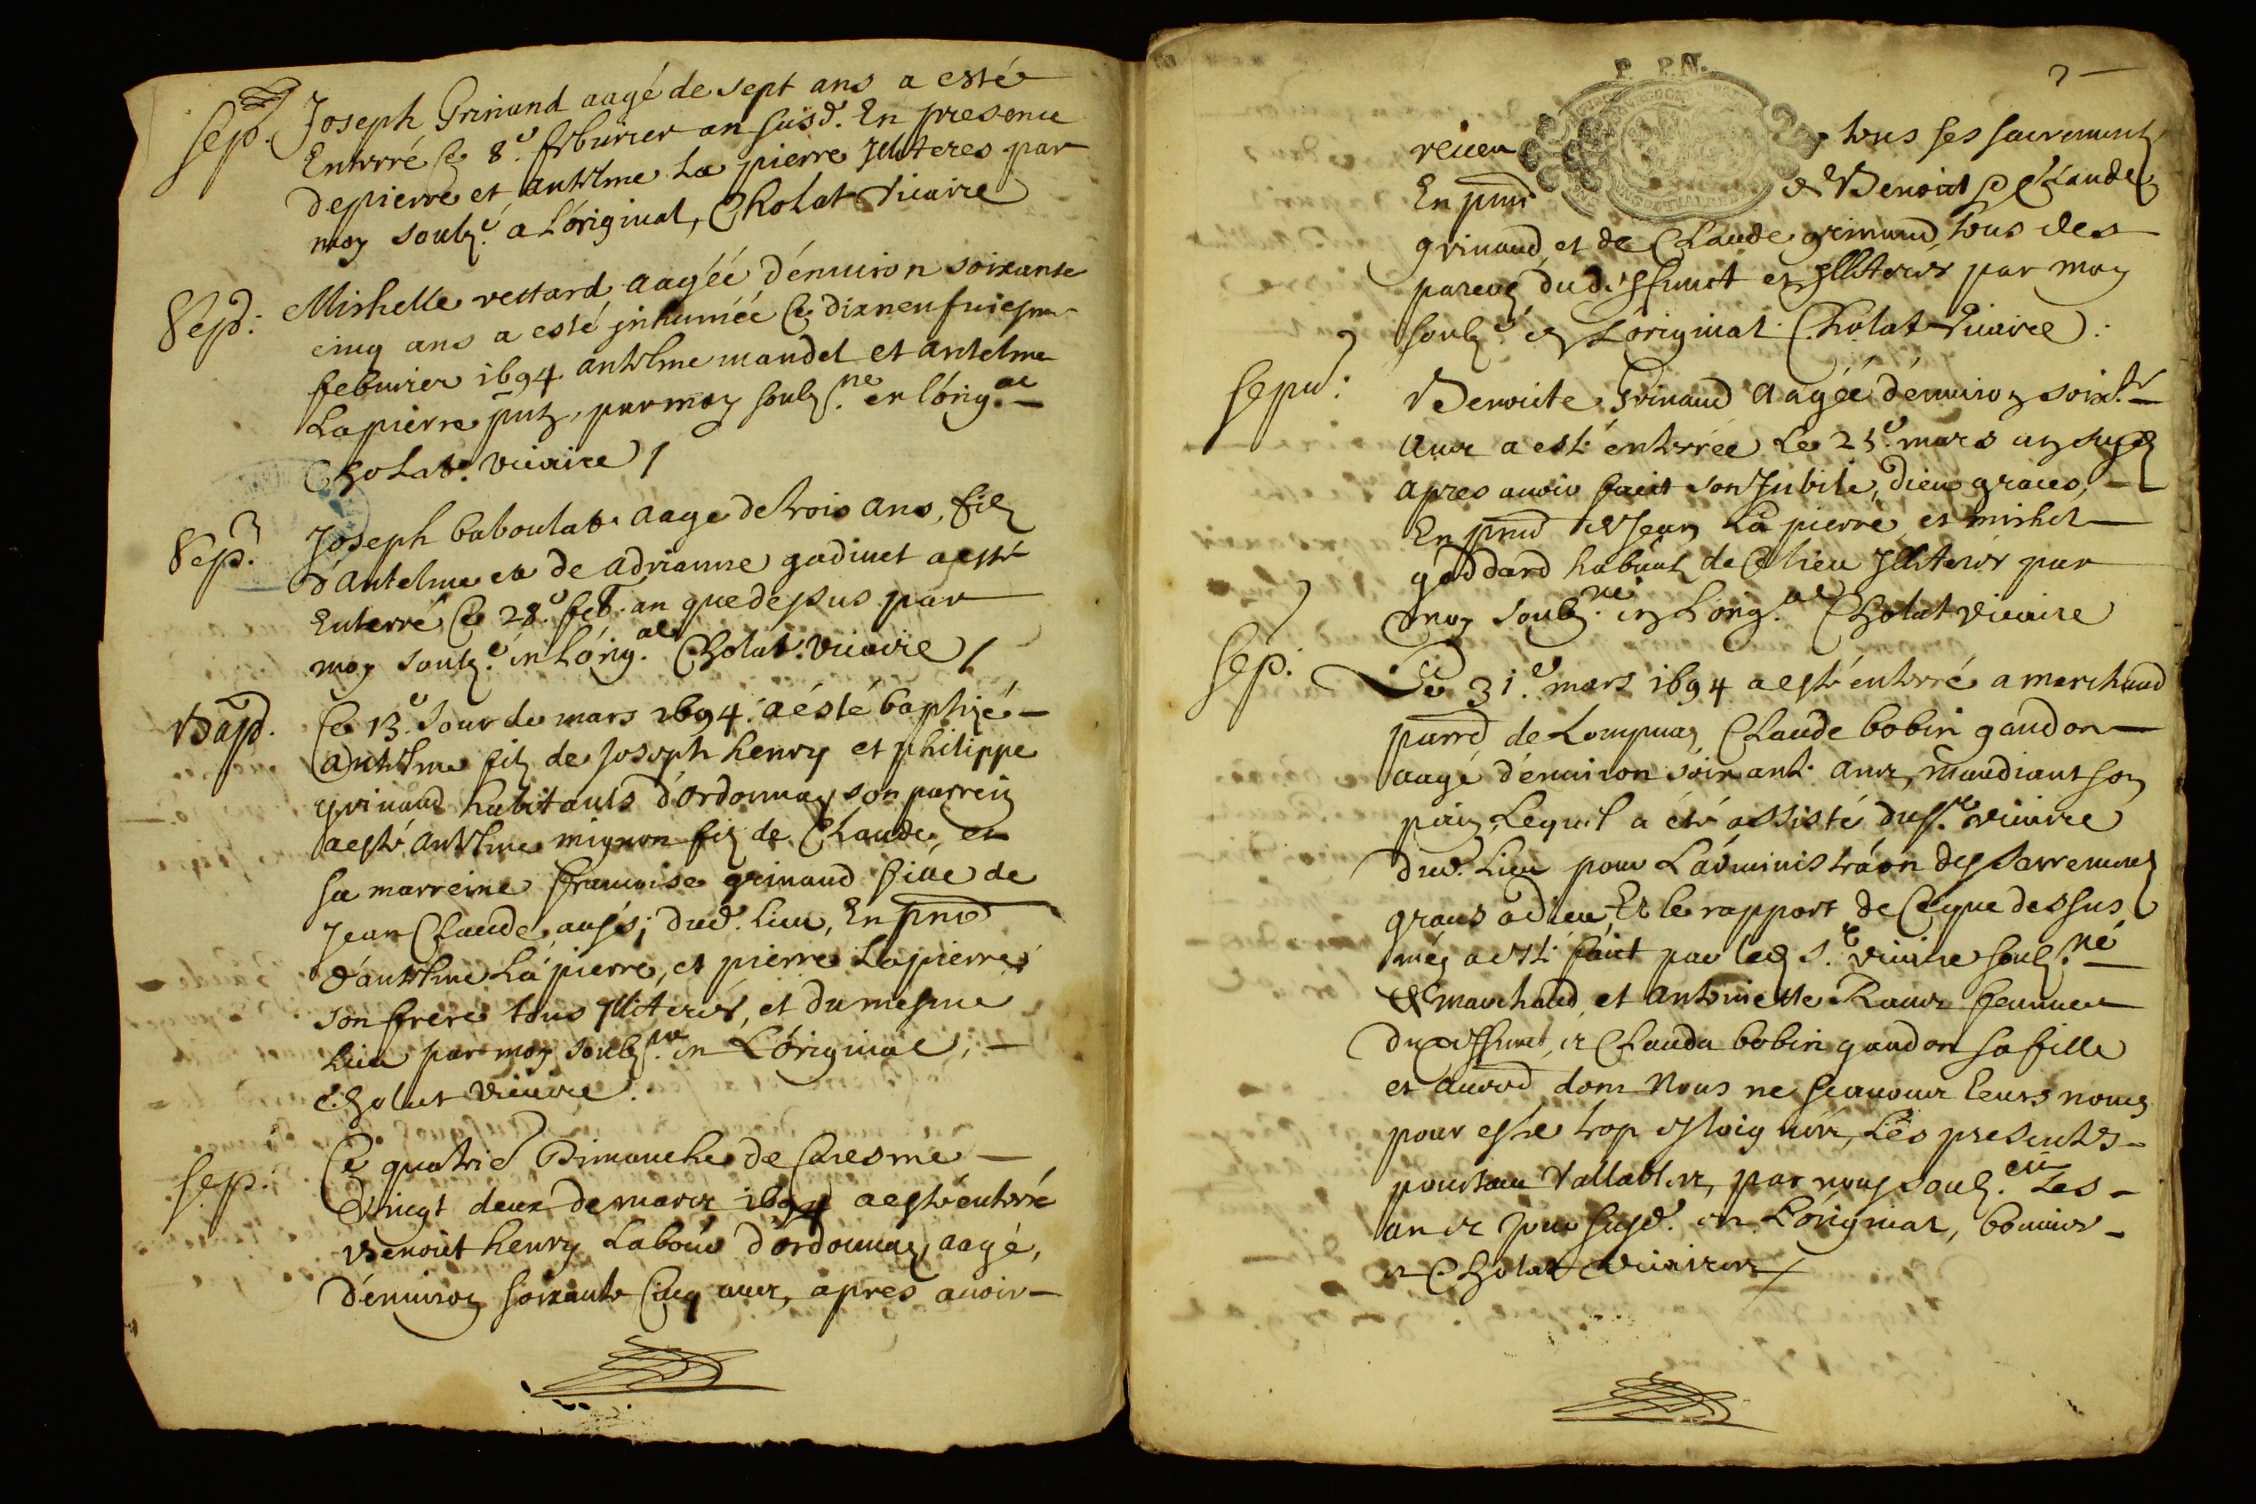 Sep. Joseph Grinand aagé de sept ans a esté
Enterré ce 8.e febvrier an susd. En presence
de pierre et antelme La pierre Illiteres par
moy soubz.é a L'original, Cholat vicaire
Sep: Mishelle vettard aagéé d'enuiron soixante
cinq ans a esté jnhuméé ce dixneufuiesme
febvrier 1694 antelme mandel et antelme
Lapierre pntz, par moy soubz.ne en l'orig.al
Cholat vicaire /
Sep. Joseph baboulat aage de trois ans, filz
d'antelme et de adrianne gadinet a esté
Enterré ce 28.e feb. an que dessus par
moy soubz.é en L'orig.al Cholat vicaire /
Bapt. Ce 13.e Jour de mars 1694 a ésté baptizé
antelme filz de Joseph henry et philippe
grinand habitants d'ordonnaz son parrein
a esté antelme mignon filz de Claude, et
sa marreine francoise grinand fille de
Jean Claude aussi dud. lieu, En pnce
d'antelme La pierre, et pierre Lapierre
son frere tous Illiteres, et du mesme
lieu par moy soubz.ne en L'original,
Cholat vicaire.
Sep. Ce quatrie Dimanche de Caresme
vingt deux de mars 1694 a esté enterré
Benoict henry Laboúr d'ordonnaz, aagé,
d'énuiron soixante Cinq ans, apres auoir
P. P.N.
receu tous ses sacrements
En pnce de Benoict et Claude
grinand, et de Claude grinand, tous des
parens dud. deffunct et Illiteres par moy
soubz.é en L'original. Cholat vicaire :
Sepu: Benoite Grinand aagéé d'énuiron soixt.e
ans a esté enterrée Le 25.e mars an susd
apres auoir faict son Jubilé, dieu graces,
En pnce de Jean La pierre et mishel
goddard habitants de Ce lieu Illiteres par
moy soubz.né en L'orig.al Cholat vicaire
Sep: Ce 31.e mars 1694 a esté enterré a marchand
parr. de Lompnaz Claude bobin gandon
aagé d'énuiron soixante ans, mandiant son
pain, Lequel a été assisté du s.r vicaire
dud. Lieu pour L'administraon des sacremens
graces a dieu, Et le rapport de Ce que dessus
a esté faict par led s.r vicaire soubz.né
de marchand, et antoinette Raux femme
du deffunct, et Clauda bobin gandon sa fille
et autres dont Nous ne scauons leurs noms
pour estre trop esloignés, Les presentes
pourtant Vallables, par nous soubz. Les
an et jour susd. en L'original,
et Cholat vicaires /